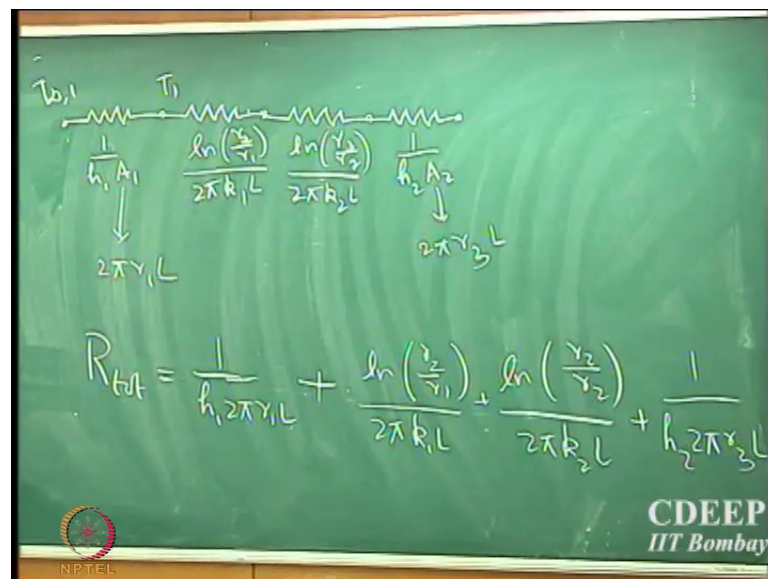 T∞,1 T₁
1/(h₁A₁) ln(r₂/r₁)/(2πk₁L) ln(r₂/r₂)/(2πk₂L) 1/(h₂A₂)
2πr₁L 2πr₃L
R_tot = 1/(h₁2πr₁L) + ln(r₂/r₁)/(2πk₁L) + ln(r₂/r₂)/(2πk₂L) + 1/(h₂2πr₃L)
CDEEP
IIT Bombay
NPTEL